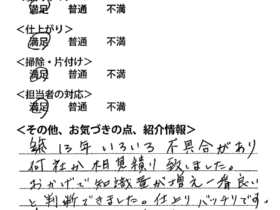 満足 普通 不満
<仕上がり>
満足 普通 不満
<掃除・片付け>
満足 普通 不満
<担当者の対応>
満足 普通 不満
<その他、お気づきの点、紹介情報>
築13年いろいろ不具合があり
何社か相見積り致しました。
おかげで知識量が増え一番良い
と判断できました。仕上りバッチリです。